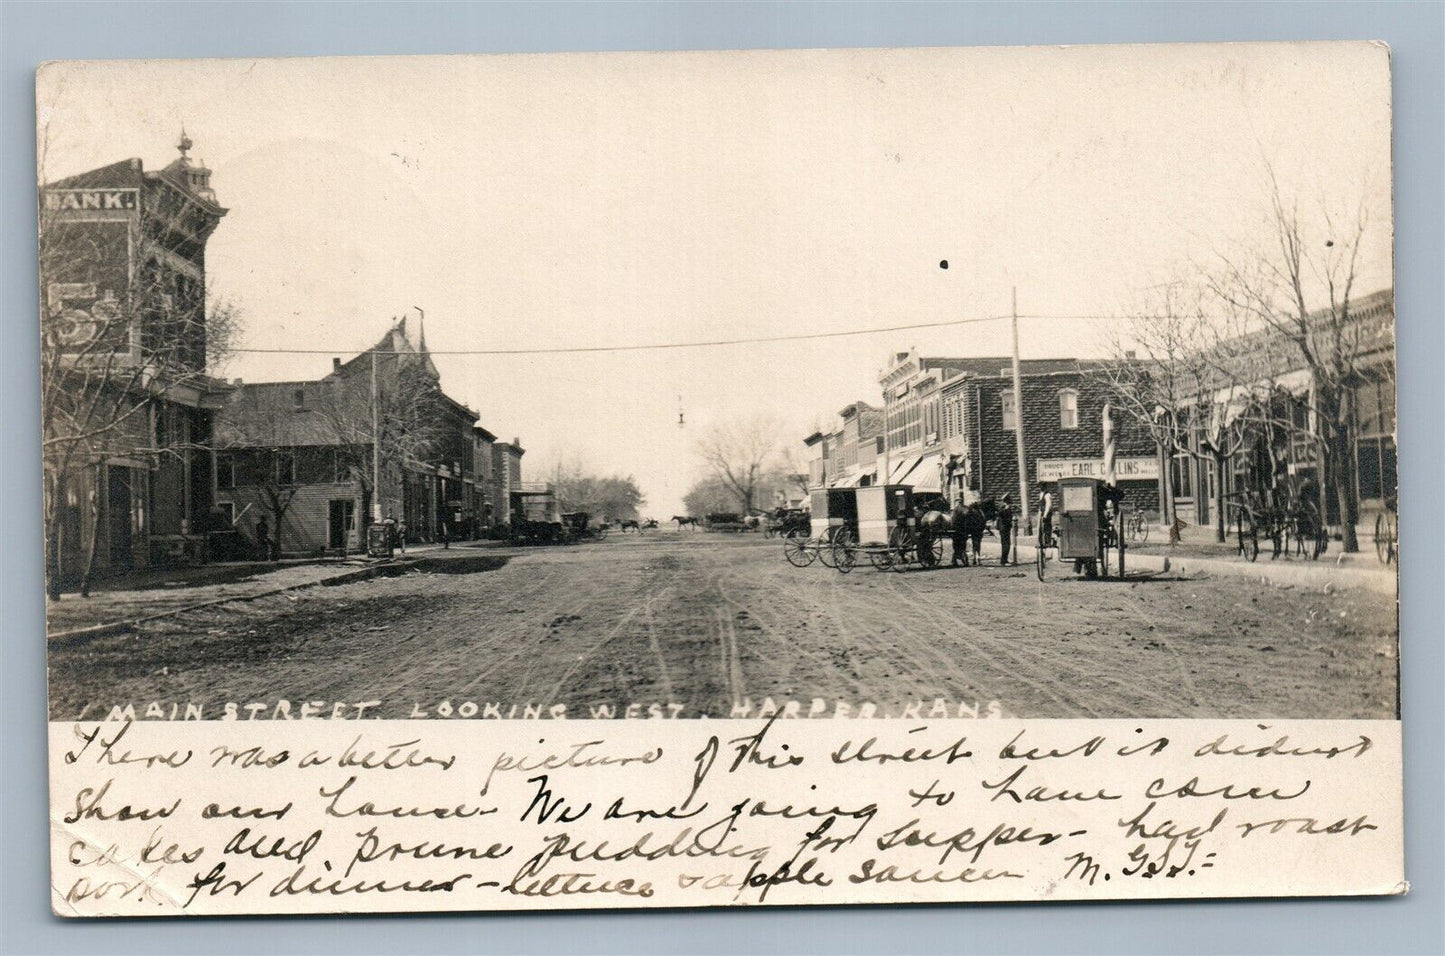 BANK.
5¢
DRUGS
JEWELRY
EARL COLLINS
MAIN STREET. LOOKING WEST. HARPER. KANS.
There was a better picture of this street but it didn't
show our house - We are going to have corn
cakes and prune pudding for supper - had roast
pork for dinner - lettuce & apple sauce M.